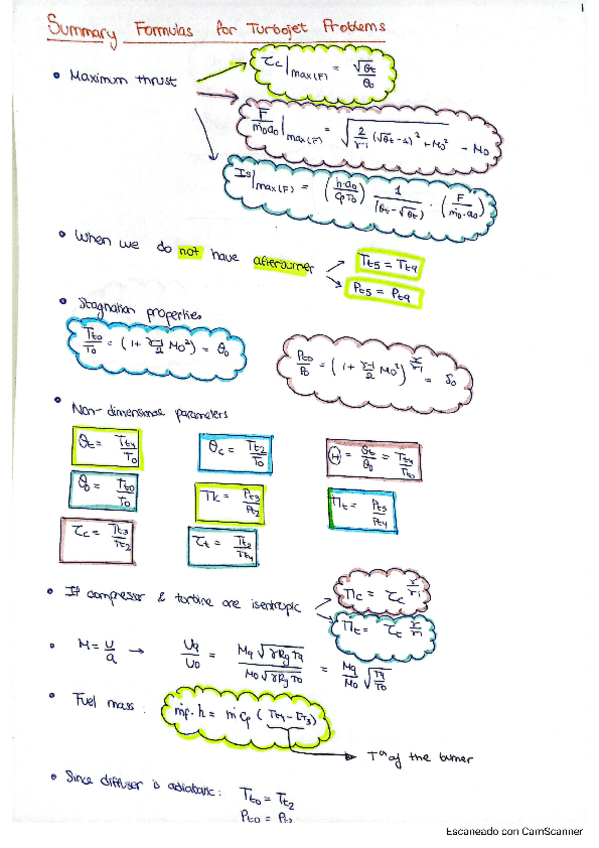 1
Summary Formulas for Turbojet Problems
• Maximum thrust
τc|max(F) = √θt / θ0
F/(ṁ0a0)|max(F) = √(2/(γ-1) (√θt - 1)² + M0²) - M0
Is|max(F) = (h·a0 / CpT0) 1/(θt - √θt) · (F / ṁ0·a0)
• When we do not have afterburner
Tt5 = Tt9
Pt5 = Pt9
• Stagnation properties
Tt0/T0 = (1 + (γ-1)/2 M0²) = θ0
Pt0/P0 = (1 + (γ-1)/2 M0²)^(γ/(γ-1)) = δ0
• Non-dimensional parameters
θt = Tt4/T0
θc = Tt2/T0
Ⓗ = θt/θ0 = Tt4/Tt0
θ0 = Tt0/T0
πc = Pt3/Pt2
πt = Pt5/Pt4
τc = Tt3/Tt2
• If compressor & turbine are isentropic
πc = τc^(γ/(γ-1))
πt = τt^(γ/(γ-1))
• M = U/a → U9/U0 = M9√(γRgT9) / M0√(γRgT0) = M9/M0 √(T9/T0)
• Fuel mass: ṁf·h = ṁCp (Tt4 - Tt3)
Tª of the burner
• Since diffuser is adiabatic: Tt0 = Tt2
Pt0 = Pt2
Escaneado con CamScanner